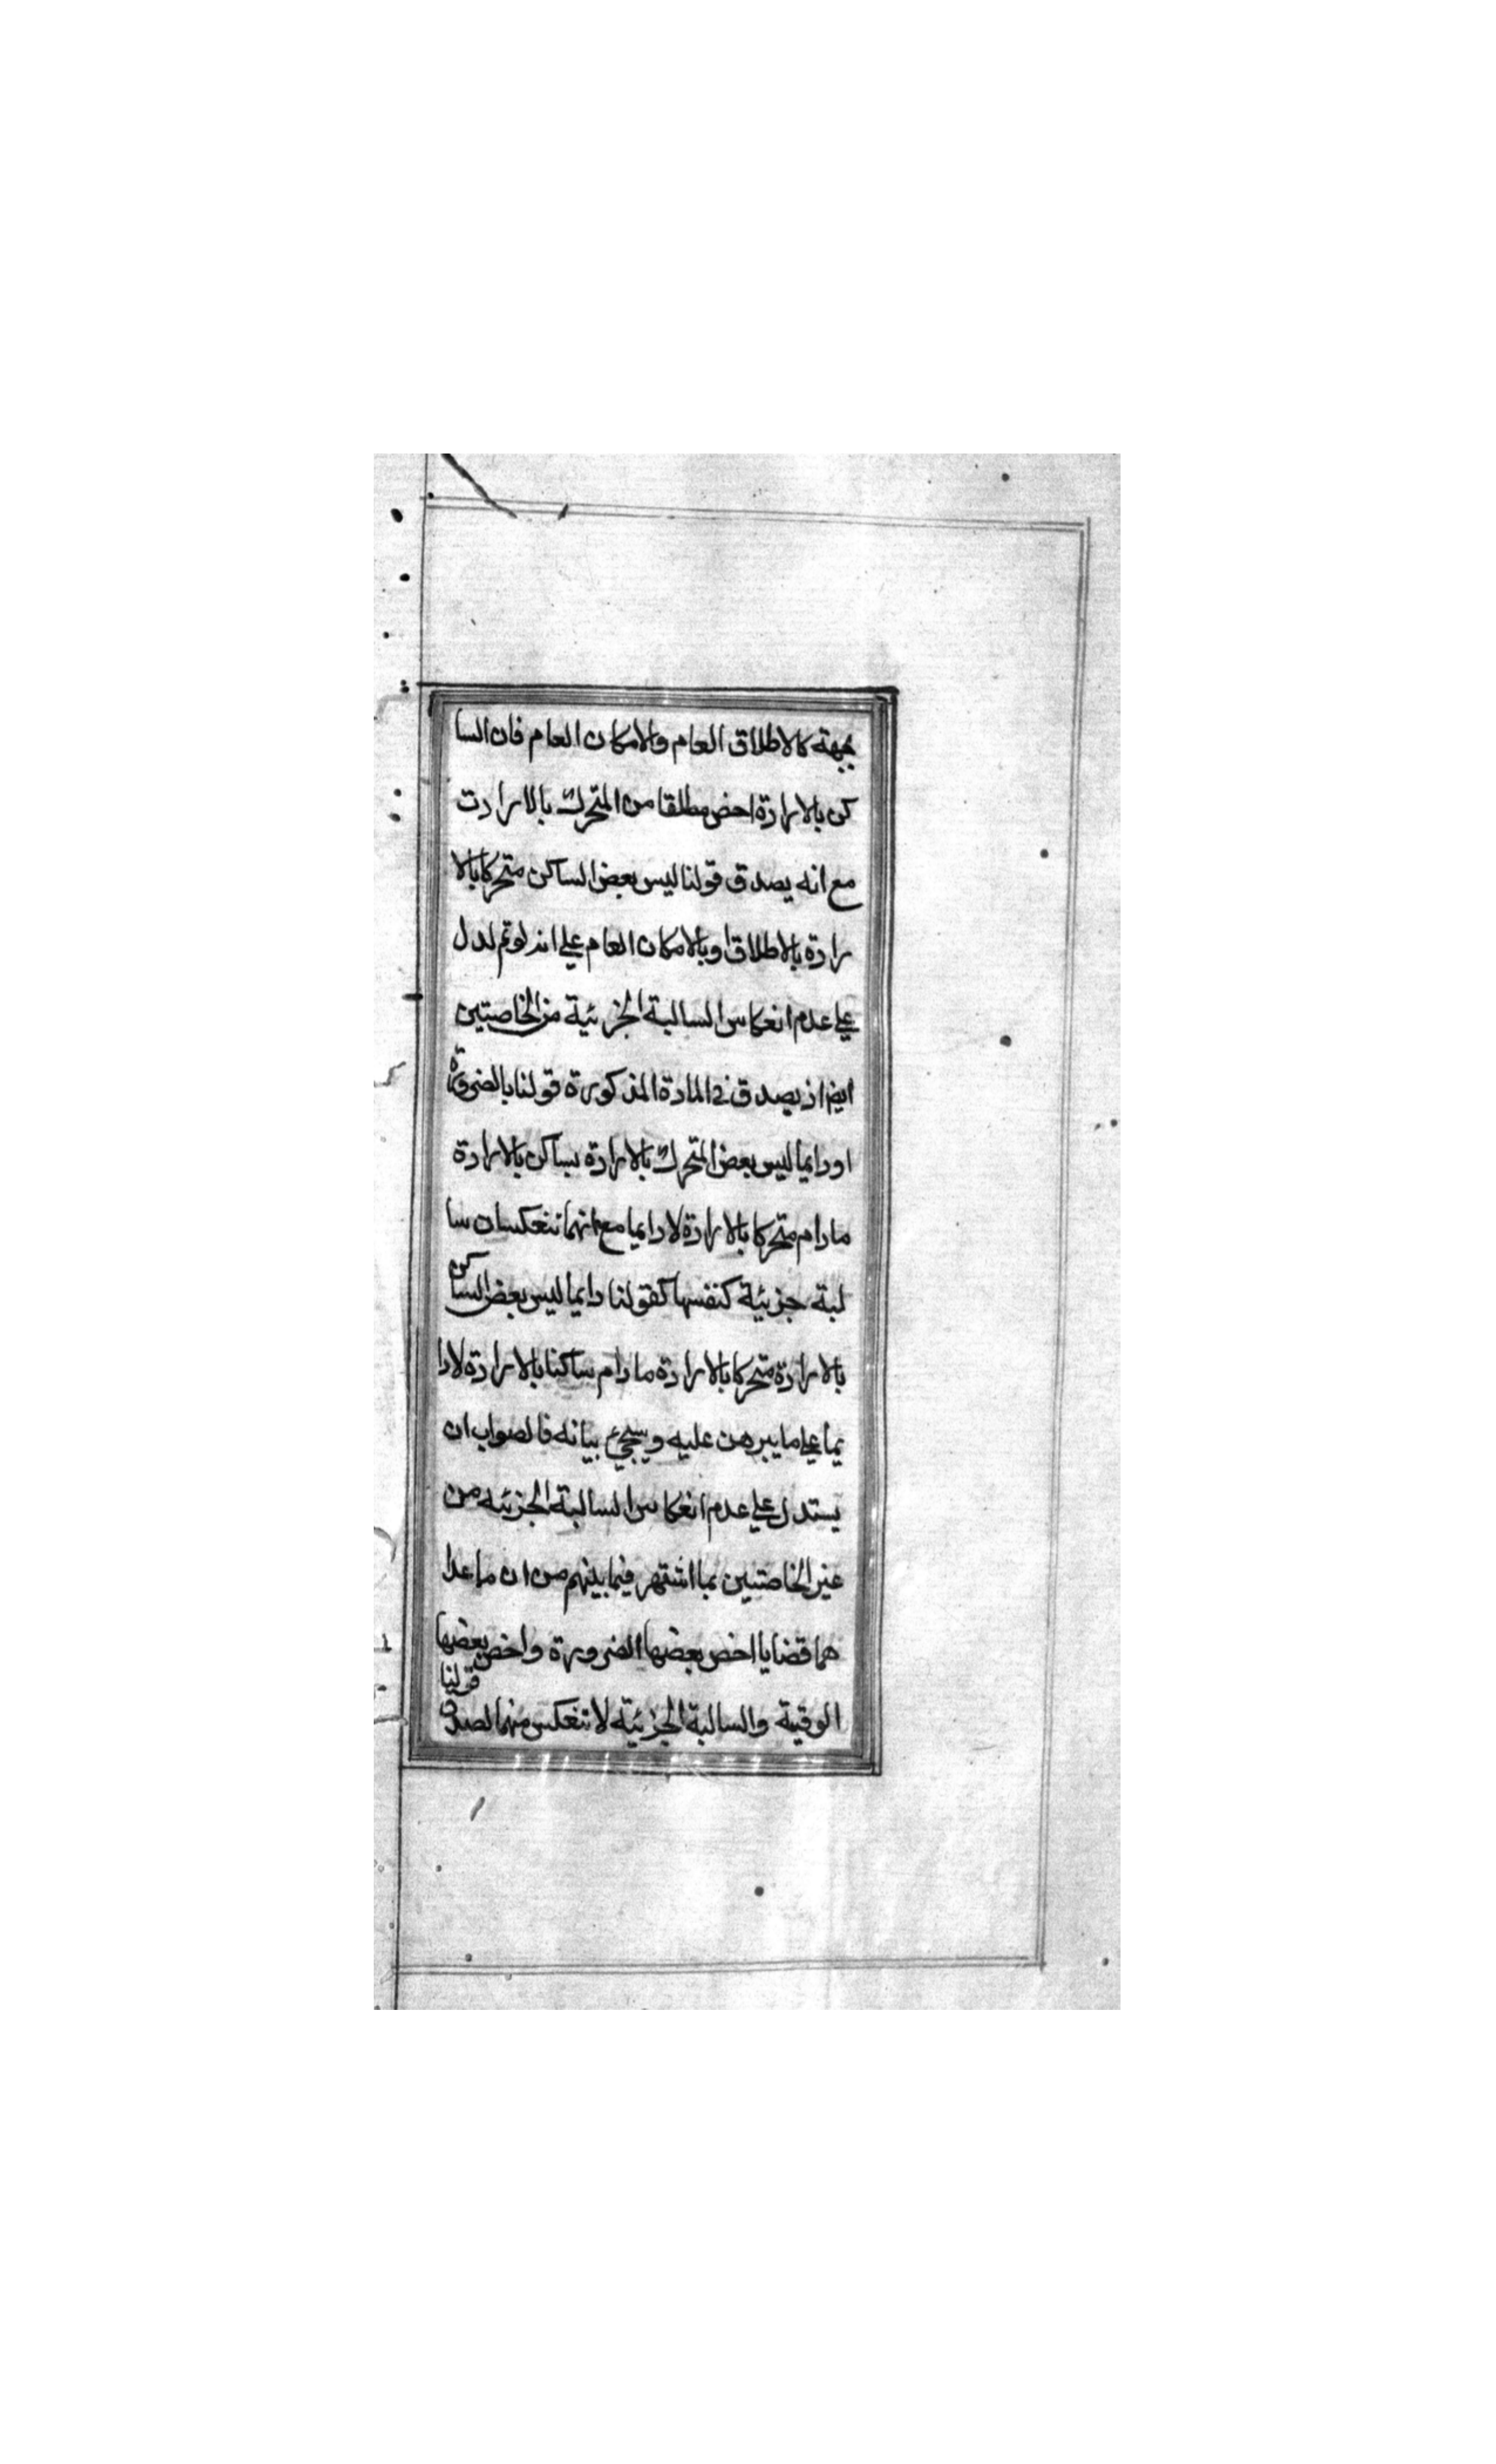 بجهة كالاطلاق العام والامكان العام فان السا
كن بالارادة اخص مطلقا من المتحرك بالارادت
مع انه يصدق قولنا ليس بعض الساكن متحركا بالا
رادة بالاطلاق او بالامكان العام علي انه لو تم لدل
علي عدم انعكاس السالبة الجزئية من الخاصتين
ايضا اذ يصدق في المادة المذكورة قولنا بالضرورة
او دايما ليس بعض المتحرك بالارادة بساكن بالارادة
مادام متحركا بالارادة لا دايما مع انهما تنعكسان سا
لبة جزئية كنفسها كقولنا دايما ليس بعض الساكن
بالارادة متحركا بالارادة مادام ساكنا بالارادة لا دا
يما علي ما يبرهن عليه وسيجئ بيانه فالصواب ان
يستدل علي عدم انعكاس السالبة الجزئيه من
غير الخاصتين بما اشتهر فيما بينهم من ان ما عدا
هما قضايا اخص بعضها الضرورة واخص بعضها
الوقية والسالبة الجزئية لا تنعكس منهما لصدق قولنا